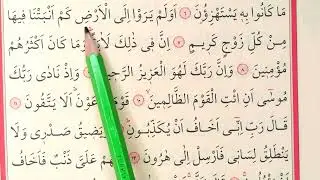 مَا كَانُوا بِهِ يَسْتَهْزِؤُنَ ﴿٦﴾ اَوَلَمْ يَرَوْا اِلَى الْاَرْضِ كَمْ اَنْبَتْنَا فٖيهَا
مِنْ كُلِّ زَوْجٍ كَرٖيمٍ ﴿٧﴾ اِنَّ فٖي ذٰلِكَ وَمَا كَانَ اَكْثَرُهُمْ
مُؤْمِنٖينَ ﴿٨﴾ وَاِنَّ رَبَّكَ لَهُوَ الْعَزٖيزُ ﴿٩﴾ وَاِذْ نَادٰى رَبُّكَ
مُوسٰٓى اَنِ ائْتِ الْقَوْمَ الظَّالِمٖينَ ﴿١٠﴾ قَوْمَ اَلَا يَتَّقُونَ ﴿١١﴾
قَالَ رَبِّ اِنّٖٓي اَخَافُ اَنْ يُكَذِّبُونِ ﴿١٢﴾ وَيَضٖيقُ صَدْرٖي وَلَا
يَنْطَلِقُ لِسَانٖي فَاَرْسِلْ اِلٰى هٰرُونَ ﴿١٣﴾ عَلَيَّ ذَنْبٌ فَاَخَافُ